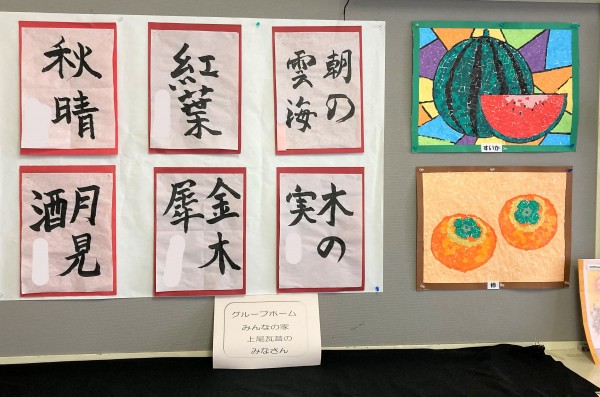 秋晴
紅葉
朝の
雲海
月見
酒
金木
犀
木の
実
グループホーム
みんなの家
上尾瓦葺の
みなさん
すいか
柿